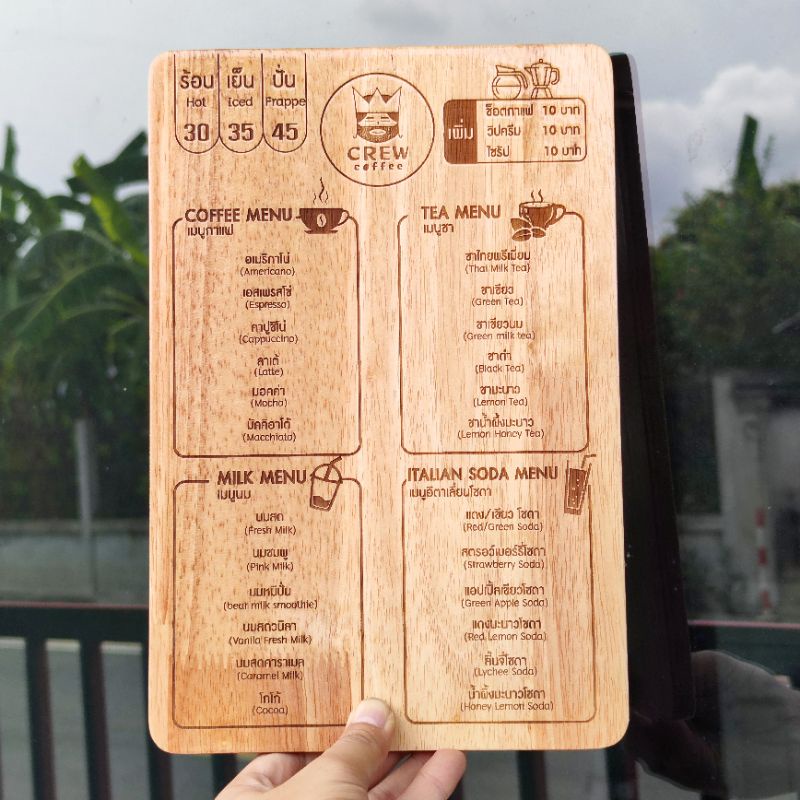 ร้อน เย็น ปั่น
Hot Iced Frappe
30 35 45
CREW
coffee
เพิ่ม
ช็อตกาแฟ 10 บาท
วิปครีม 10 บาท
ไซรัป 10 บาท
COFFEE MENU
เมนูกาแฟ
อเมริกาโน่
(Americano)
เอสเพรสโซ่
(Espresso)
คาปูชิโน่
(Cappuccino)
ลาเต้
(Latte)
มอคค่า
(Mocha)
มัคคิอาโต้
(Macchiato)
TEA MENU
เมนูชา
ชาไทยพรีเมี่ยม
(Thai Milk Tea)
ชาเขียว
(Green Tea)
ชาเขียวนม
(Green milk tea)
ชาดำ
(Black Tea)
ชามะนาว
(Lemon Tea)
ชาน้ำผึ้งมะนาว
(Lemon Honey Tea)
MILK MENU
เมนูนม
นมสด
(Fresh Milk)
นมชมพู
(Pink Milk)
นมหมีปั่น
(bear milk smoothie)
นมสดวนิลา
(Vanila Fresh Milk)
นมสดคาราเมล
(Caramel Milk)
โกโก้
(Cocoa)
ITALIAN SODA MENU
เมนูอิตาเลี่ยนโซดา
แดง/เขียว โซดา
(Red/Green Soda)
สตรอว์เบอร์รี่โซดา
(Strawberry Soda)
แอปเปิ้ลเขียวโซดา
(Green Apple Soda)
แดงมะนาวโซดา
(Red Lemon Soda)
ลิ้นจี่โซดา
(Lychee Soda)
น้ำผึ้งมะนาวโซดา
(Honey Lemon Soda)